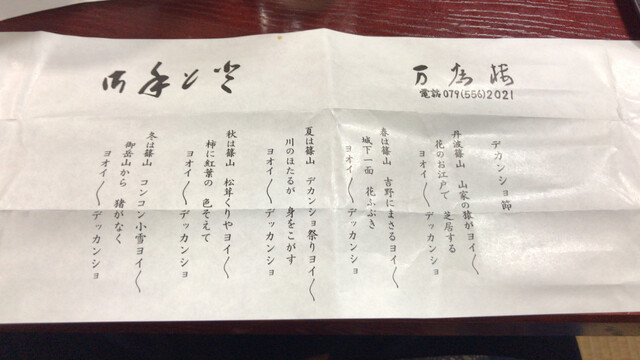 電話079(556)2021
デカンショ節
丹波篠山　山家の猿がヨイ〳〵
花のお江戸で　芝居する
ヨオイ〳〵　デッカンショ
春は篠山　吉野にまさるヨイ〳〵
城下一面　花ふぶき
ヨオイ〳〵　デッカンショ
夏は篠山　デカンショ祭りヨイ〳〵
川のほたるが　身をこがす
ヨオイ〳〵　デッカンショ
秋は篠山　松茸くりやヨイ〳〵
柿に紅葉の　色そえて
ヨオイ〳〵　デッカンショ
冬は篠山　コンコン小雪ヨイ〳〵
御岳山から　猪がなく
ヨオイ〳〵　デッカンショ